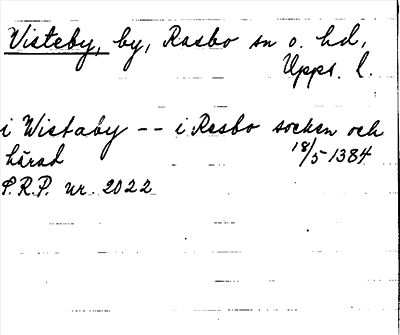 Visteby, by, Rasbo sn o. hd,
Upps. l.
i Wistaby -- i Rasbo socken och
härad 18/5 1384
S.R.P. nr. 2022